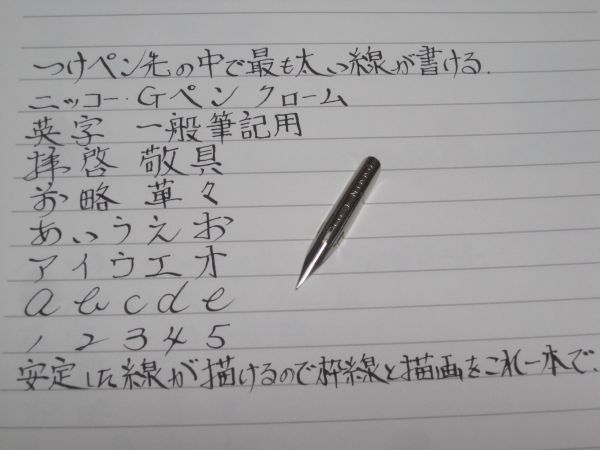 つけペン先の中で最も太い線が書ける.
ニッコー・Gペン クローム
英字 一般筆記用
拝啓 敬具
前略 草々
あいうえお
アイウエオ
a b c d e
1 2 3 4 5
安定した線が描けるので枠線と描画をこれ一本で.